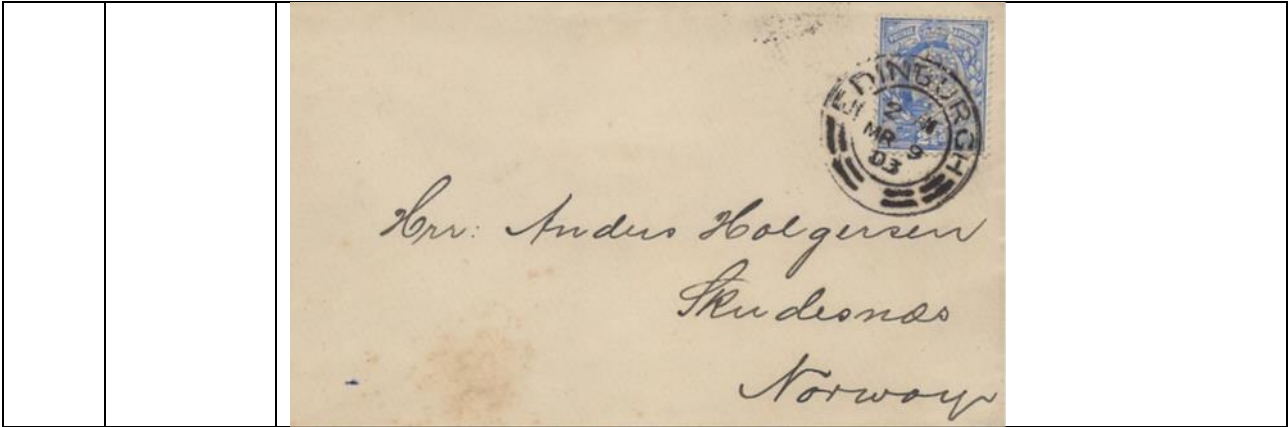 EDINBURGH
2
MR 9
03
Hrr: Anders Holgersen
Skudesnæs
Norway